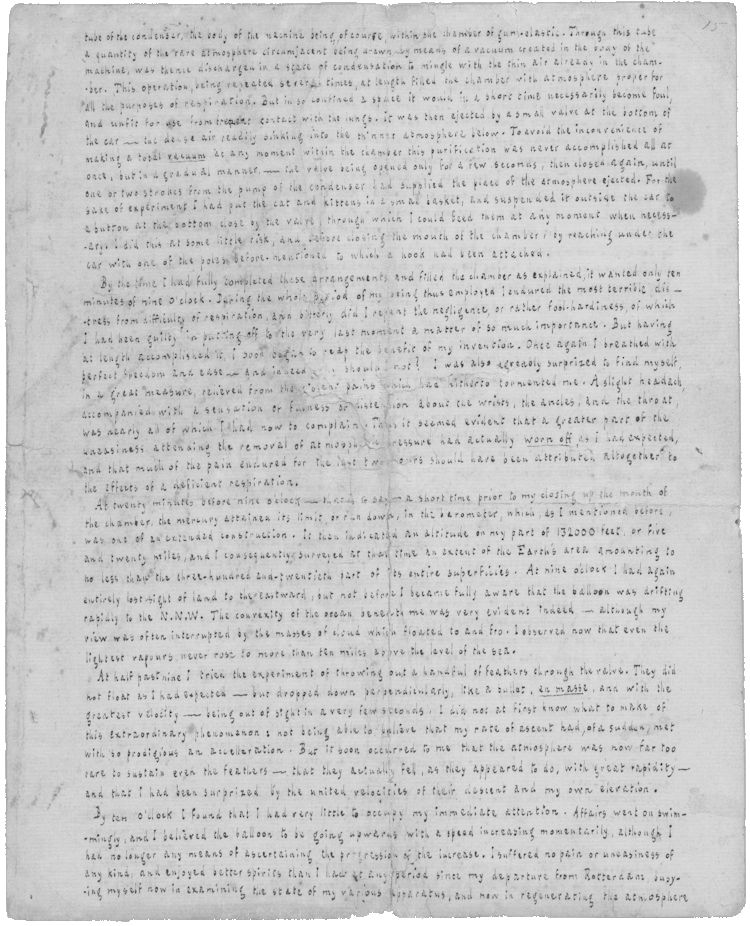 15
tube of the condenser, the body of the machine being, of course, within the chamber of gum-elastic. Through this tube
a quantity of the rare atmosphere circumjacent being drawn by means of a vacuum created in the body of the
machine, was thence discharged in a state of condensation to mingle with the thin air already in the cham-
-ber. This operation, being repeated several times, at length filled the chamber with atmosphere proper for
all the purposes of respiration. But in so confined a space it would in a short time necessarily become foul
and unfit for use from frequent contact with the lungs. It was then ejected by a small valve at the bottom of
the car — the dense air readily sinking into the thinner atmosphere below. To avoid the inconvenience of
making a total vacuum at any moment within the chamber this purification was never accomplished all at
once, but in a gradual manner. — the valve being opened only for a few seconds, then closed again, until
one or two strokes from the pump of the condenser had supplied the place of the atmosphere ejected. For the
sake of experiment I had put the cat and kittens in a small basket, and suspended it outside the car to
a button at the bottom close by the valve, through which I could feed them at any moment when necess-
-ary. I did this at some little risk, and before closing the mouth of the chamber, by reaching under the
car with one of the poles before-mentioned to which a hook had been attached.
By the time I had fully completed these arrangements and filled the chamber as explained, it wanted only ten
minutes of nine o'clock. During the whole period of my being thus employed I endured the most terrible dis-
-tress from difficulty of respiration, and bitterly did I repent the negligence, or rather fool-hardiness, of which
I had been guilty in putting off to the very last moment a matter of so much importance. But having
at length accomplished it, I soon began to reap the benefit of my invention. Once again I breathed with
perfect freedom and ease — and indeed why should I not? I was also agreeably surprized to find myself,
in a great measure, relieved from the violent pains which had hitherto tormented me. A slight headach
accompanied with a sensation of fulness or distention about the wrists, the ancles, and the throat,
was nearly all of which I had now to complain. Thus it seemed evident that a greater part of the
uneasiness attending the removal of atmospheric pressure had actually worn off as I had expected,
and that much of the pain endured for the last two hours should have been attributed altogether to
the effects of a deficient respiration.
At twenty minutes before nine o'clock — that is to say — a short time prior to my closing up the mouth of
the chamber, the mercury attained its limit, or ran down, in the barometer, which, as I mentioned before,
was one of an extended construction. It then indicated an altitude on my part of 132000 feet, or five
and twenty miles, and I consequently surveyed at that time an extent of the Earth's area amounting to
no less than the three-hundred-and-twentieth part of its entire superficies. At nine o'clock I had again
entirely lost sight of land to the eastward, but not before I became fully aware that the balloon was drifting
rapidly to the N.N.W. The convexity of the ocean beneath me was very evident indeed — although my
view was often interrupted by the masses of cloud which floated to and fro. I observed now that even the
lightest vapours never rose to more than ten miles above the level of the sea.
At half past nine I tried the experiment of throwing out a handful of feathers through the valve. They did
not float as I had expected — but dropped down perpendicularly, like a bullet, en masse, and with the
greatest velocity — being out of sight in a very few seconds. I did not at first know what to make of
this extraordinary phenomenon: not being able to believe that my rate of ascent had, of a sudden, met
with so prodigious an accelleration. But it soon occurred to me that the atmosphere was now far too
rare to sustain even the feathers — that they actually fell, as they appeared to do, with great rapidity —
and that I had been surprized by the united velocities of their descent and my own elevation.
By ten o'clock I found that I had very little to occupy my immediate attention. Affairs went on swim-
-mingly, and I believed the balloon to be going upwards with a speed increasing momentarily, although I
had no longer any means of ascertaining the progression of the increase. I suffered no pain or uneasiness of
any kind, and enjoyed better spirits than I had at any period since my departure from Rotterdam, busy-
-ing myself now in examining the state of my various apparatus, and now in regenerating the atmosphere